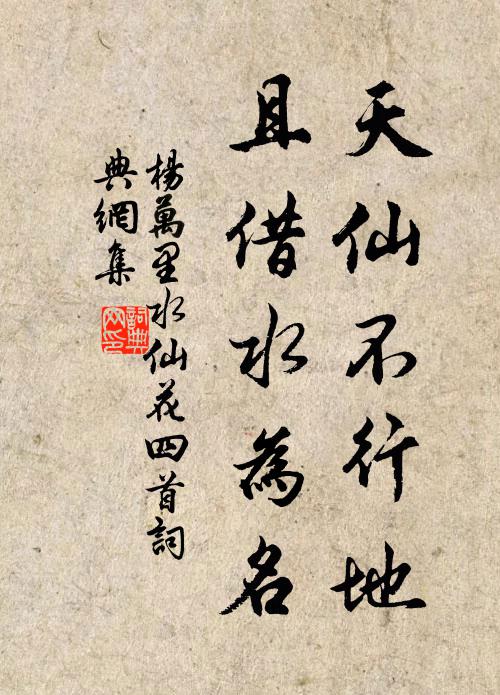 天仙不行地
且借水為名
楊萬里水仙花四首詞
典網集
詞典
网印